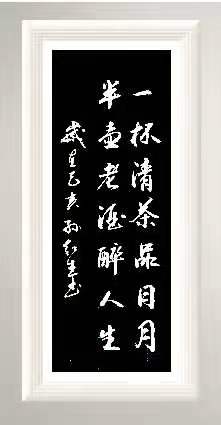 一杯清茶品日月
半壶老酒醉人生
岁在己亥孙红生书